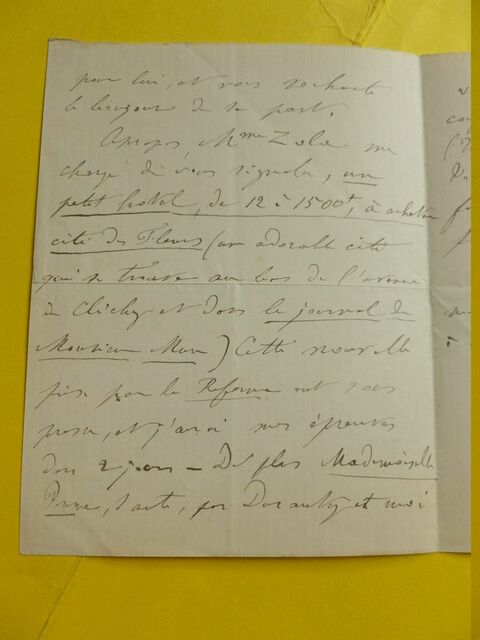 pour lui, et vous souhaite
le bonjour de sa part.
Apropos, Mme Zola me
charge de vous signaler, un
petit hotel, de 12 à 1500f, à acheter
cité des Fleurs (une adorable cité
qui se trouve au bas de l'avenue
de Clichy et dans le journal de
Monsieur Mure) Cette nouvelle
prise par la Réforme est sous
presse, et j'aurai mes épreuves
dans 2 jours – De plus Mademoiselle
Pomme, 1 acte, par Duranty et moi